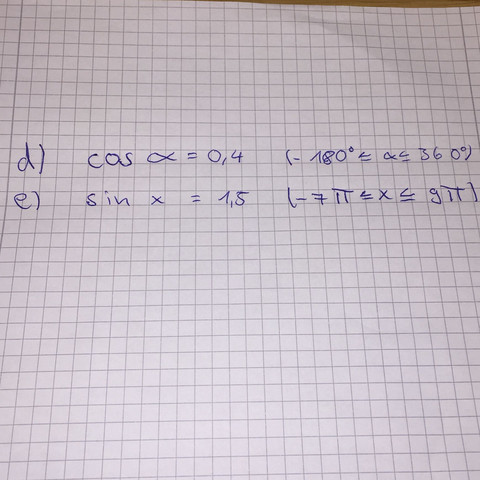 d) cos α = 0,4 (- 180° ≤ α ≤ 360°)
e) sin x = 1,5 (- 7π ≤ x ≤ 9π)